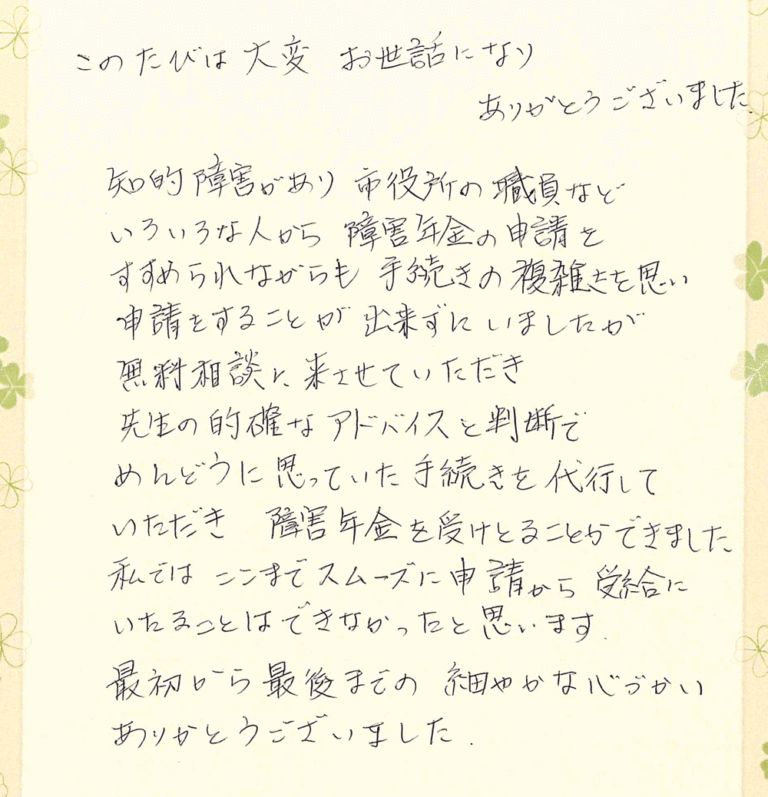 このたびは大変 お世話になり
ありがとうございました.
知的障害があり 市役所の職員など
いろいろな人から 障害年金の申請を
すすめられながらも 手続きの複雑さを思い
申請をすることが 出来ずにいましたが
無料相談に 来させていただき
先生の的確なアドバイスと判断で
めんどうに思っていた手続きを代行して
いただき 障害年金を受けとることができました
私では ここまでスムーズに申請から 受給に
いたることはできなかったと思います.
最初から最後までの 細やかな心づかい
ありがとうございました.